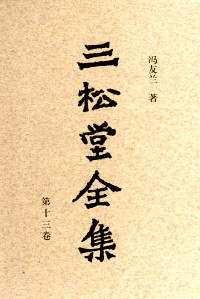 冯友兰 著
三松堂全集
第十三卷